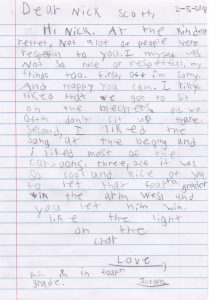 Dear Nick Scott,
2-5-20
Hi Nick. At the Kindness
retret, Not alot of people were
respetful to you. I myself was
Not so nice or respetful, my
frinds too. first, off i'm sorry.
And Happy you cam. I rilly
liked that we got to sit
on the blechers, as we
Oftin don't sit up there.
Second, I liked the
song at the begong and
i liked most of the
cartoons. three, off it was
So cool and nice of you
to let that fourth grader
win the arm wess and
you let him win.
like the light
on the
chat
Love
P.S. in fourth
grade.